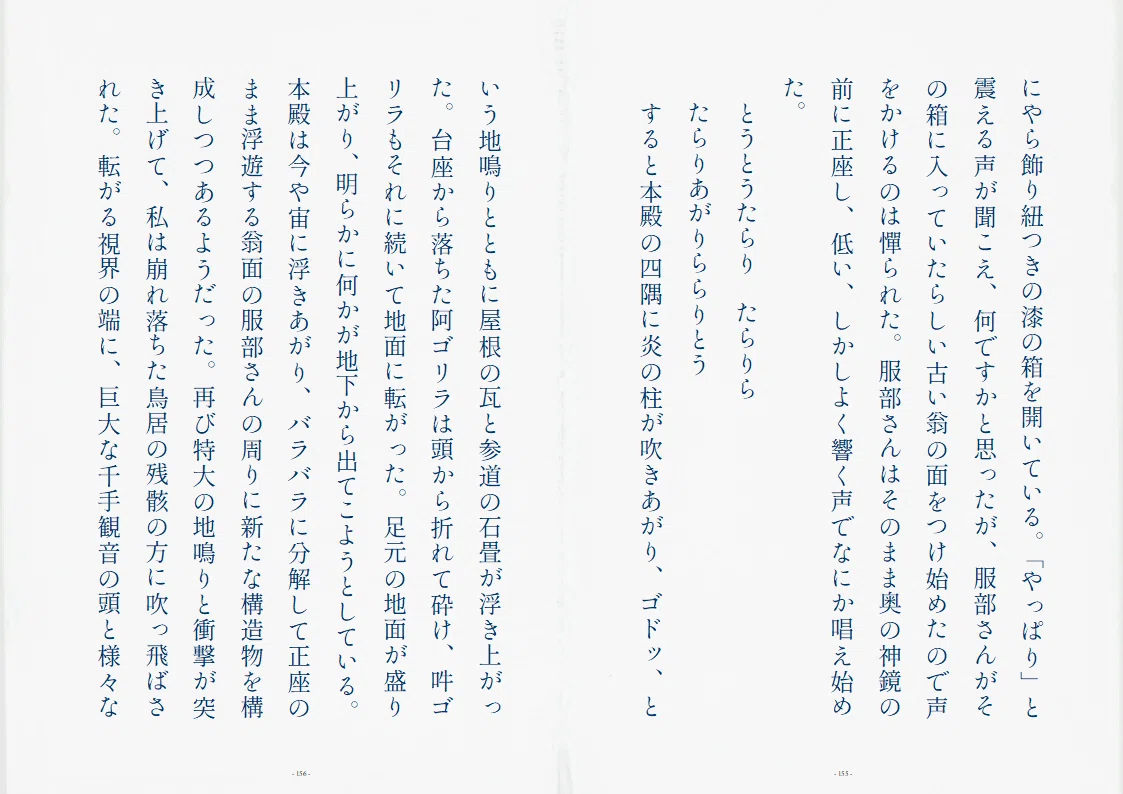 にやら飾り紐つきの漆の箱を開いている。「やっぱり」と
震える声が聞こえ、何ですかと思ったが、服部さんがそ
の箱に入っていたらしい古い翁の面をつけ始めたので声
をかけるのは憚られた。服部さんはそのまま奥の神鏡の
前に正座し、低い、しかしよく響く声でなにか唱え始め
た。
とうとうたらり　たらりら
たらりあがりららりとう
すると本殿の四隅に炎の柱が吹きあがり、ゴドッ、と
- 155 -
いう地鳴りとともに屋根の瓦と参道の石畳が浮き上がっ
た。台座から落ちた阿ゴリラは頭から折れて砕け、吽ゴ
リラもそれに続いて地面に転がった。足元の地面が盛り
上がり、明らかに何かが地下から出てこようとしている。
本殿は今や宙に浮きあがり、バラバラに分解して正座の
まま浮遊する翁面の服部さんの周りに新たな構造物を構
成しつつあるようだった。再び特大の地鳴りと衝撃が突
き上げて、私は崩れ落ちた鳥居の残骸の方に吹っ飛ばさ
れた。転がる視界の端に、巨大な千手観音の頭と様々な
- 156 -